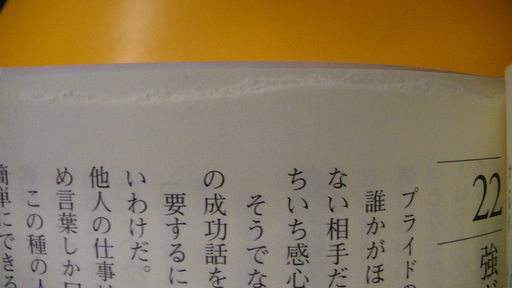 22
強
プライドの
誰かがほ
ない相手だ
ちいち感心
そうでな
の成功話を
要するに
いわけだ。
他人の仕事
め言葉しか
この種の人
簡単にできる